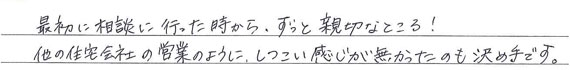 最初に相談に行った時から、ずっと親切なところ!
他の住宅会社の営業のように、しつこい感じが無かったのも決め手です。